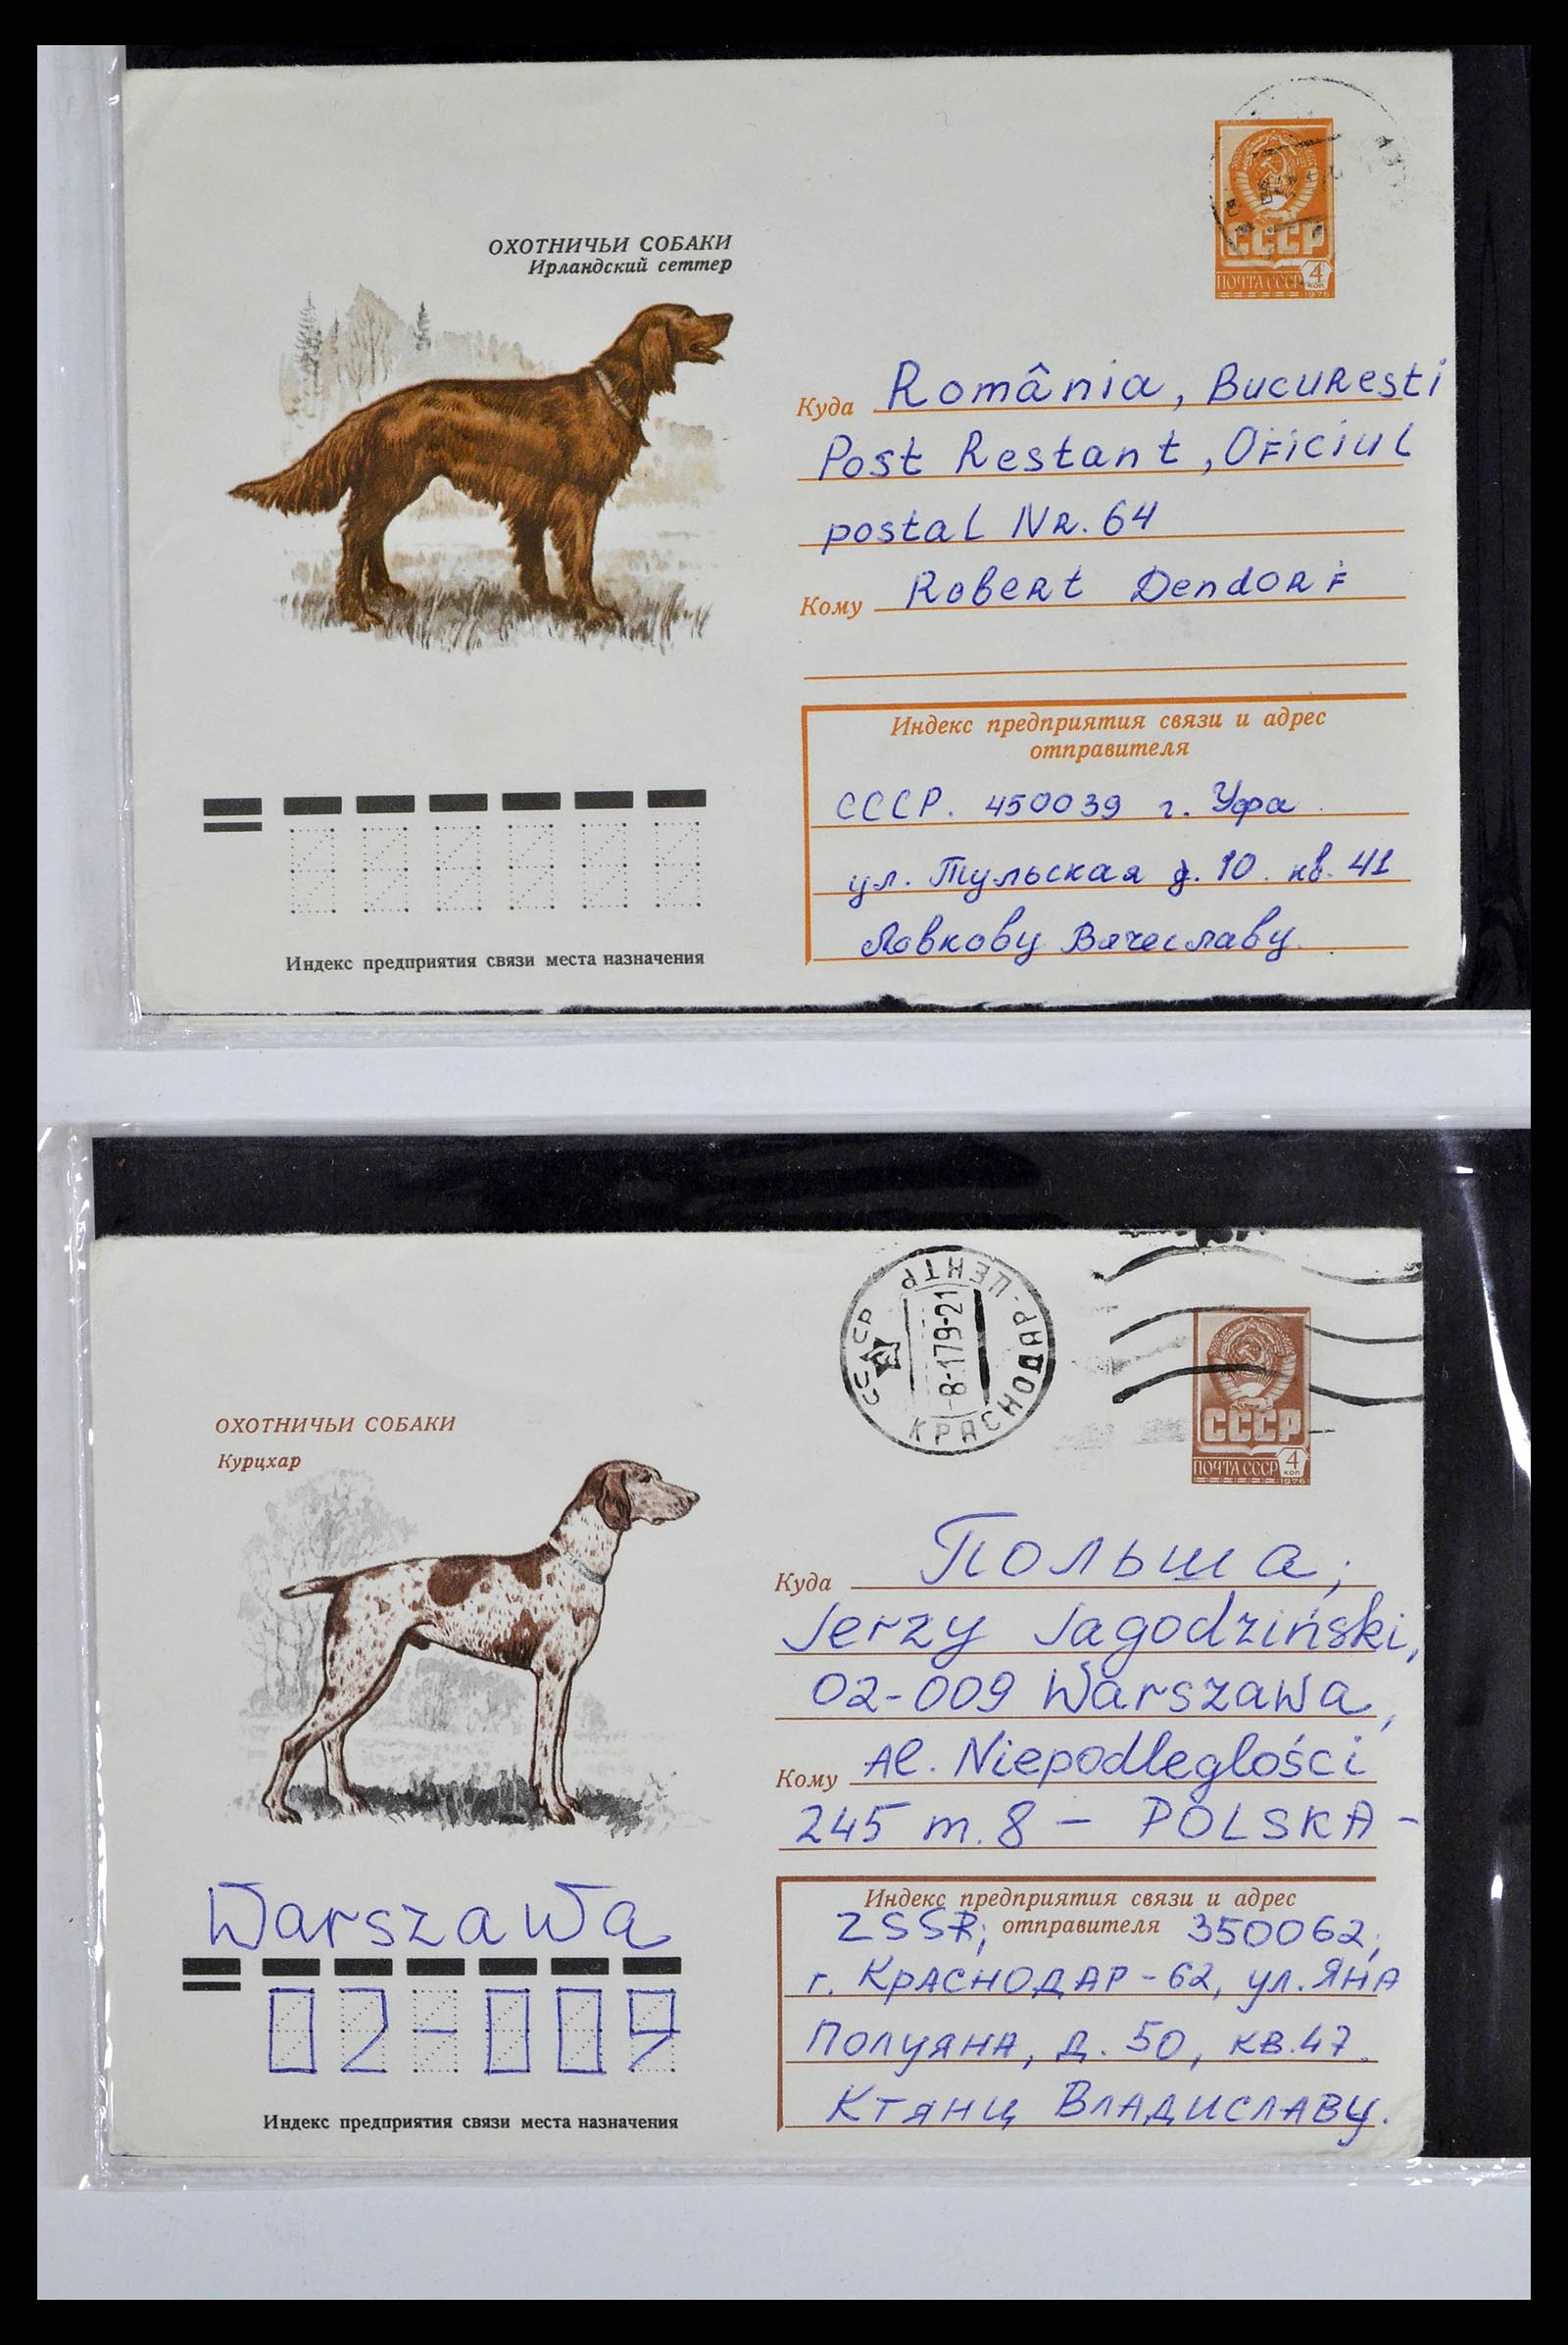 ОХОТНИЧЬИ СОБАКИ
Ирландский сеттер
СССР
ПОЧТА СССР 4
КОП
1976
Куда România, Bucuresti
Post Restant, Oficiul
postal Nr. 64
Кому Robert Dendorf
Индекс предприятия связи и адрес
отправителя
СССР. 450039 г. Уфа
ул. Тульская д. 10. кв. 41
Ловкову Вячеславу
Индекс предприятия связи места назначения
СССР
КРАСНОДАР-ЦЕНТР
-8-179-21
СССР
ПОЧТА СССР 4
КОП
1976
ОХОТНИЧЬИ СОБАКИ
Курцхар
Куда Польша,
Jerzy Jagodziński,
02-009 Warszawa,
Кому Al. Niepodleglości
245 m. 8 - POLSKA -
Индекс предприятия связи и адрес
ZSSR; отправителя 350062;
г. Краснодар-62, ул. Яна
Полуяна, д. 50, кв. 47.
Ктянц Владиславу.
Warszawa
02-009
Индекс предприятия связи места назначения